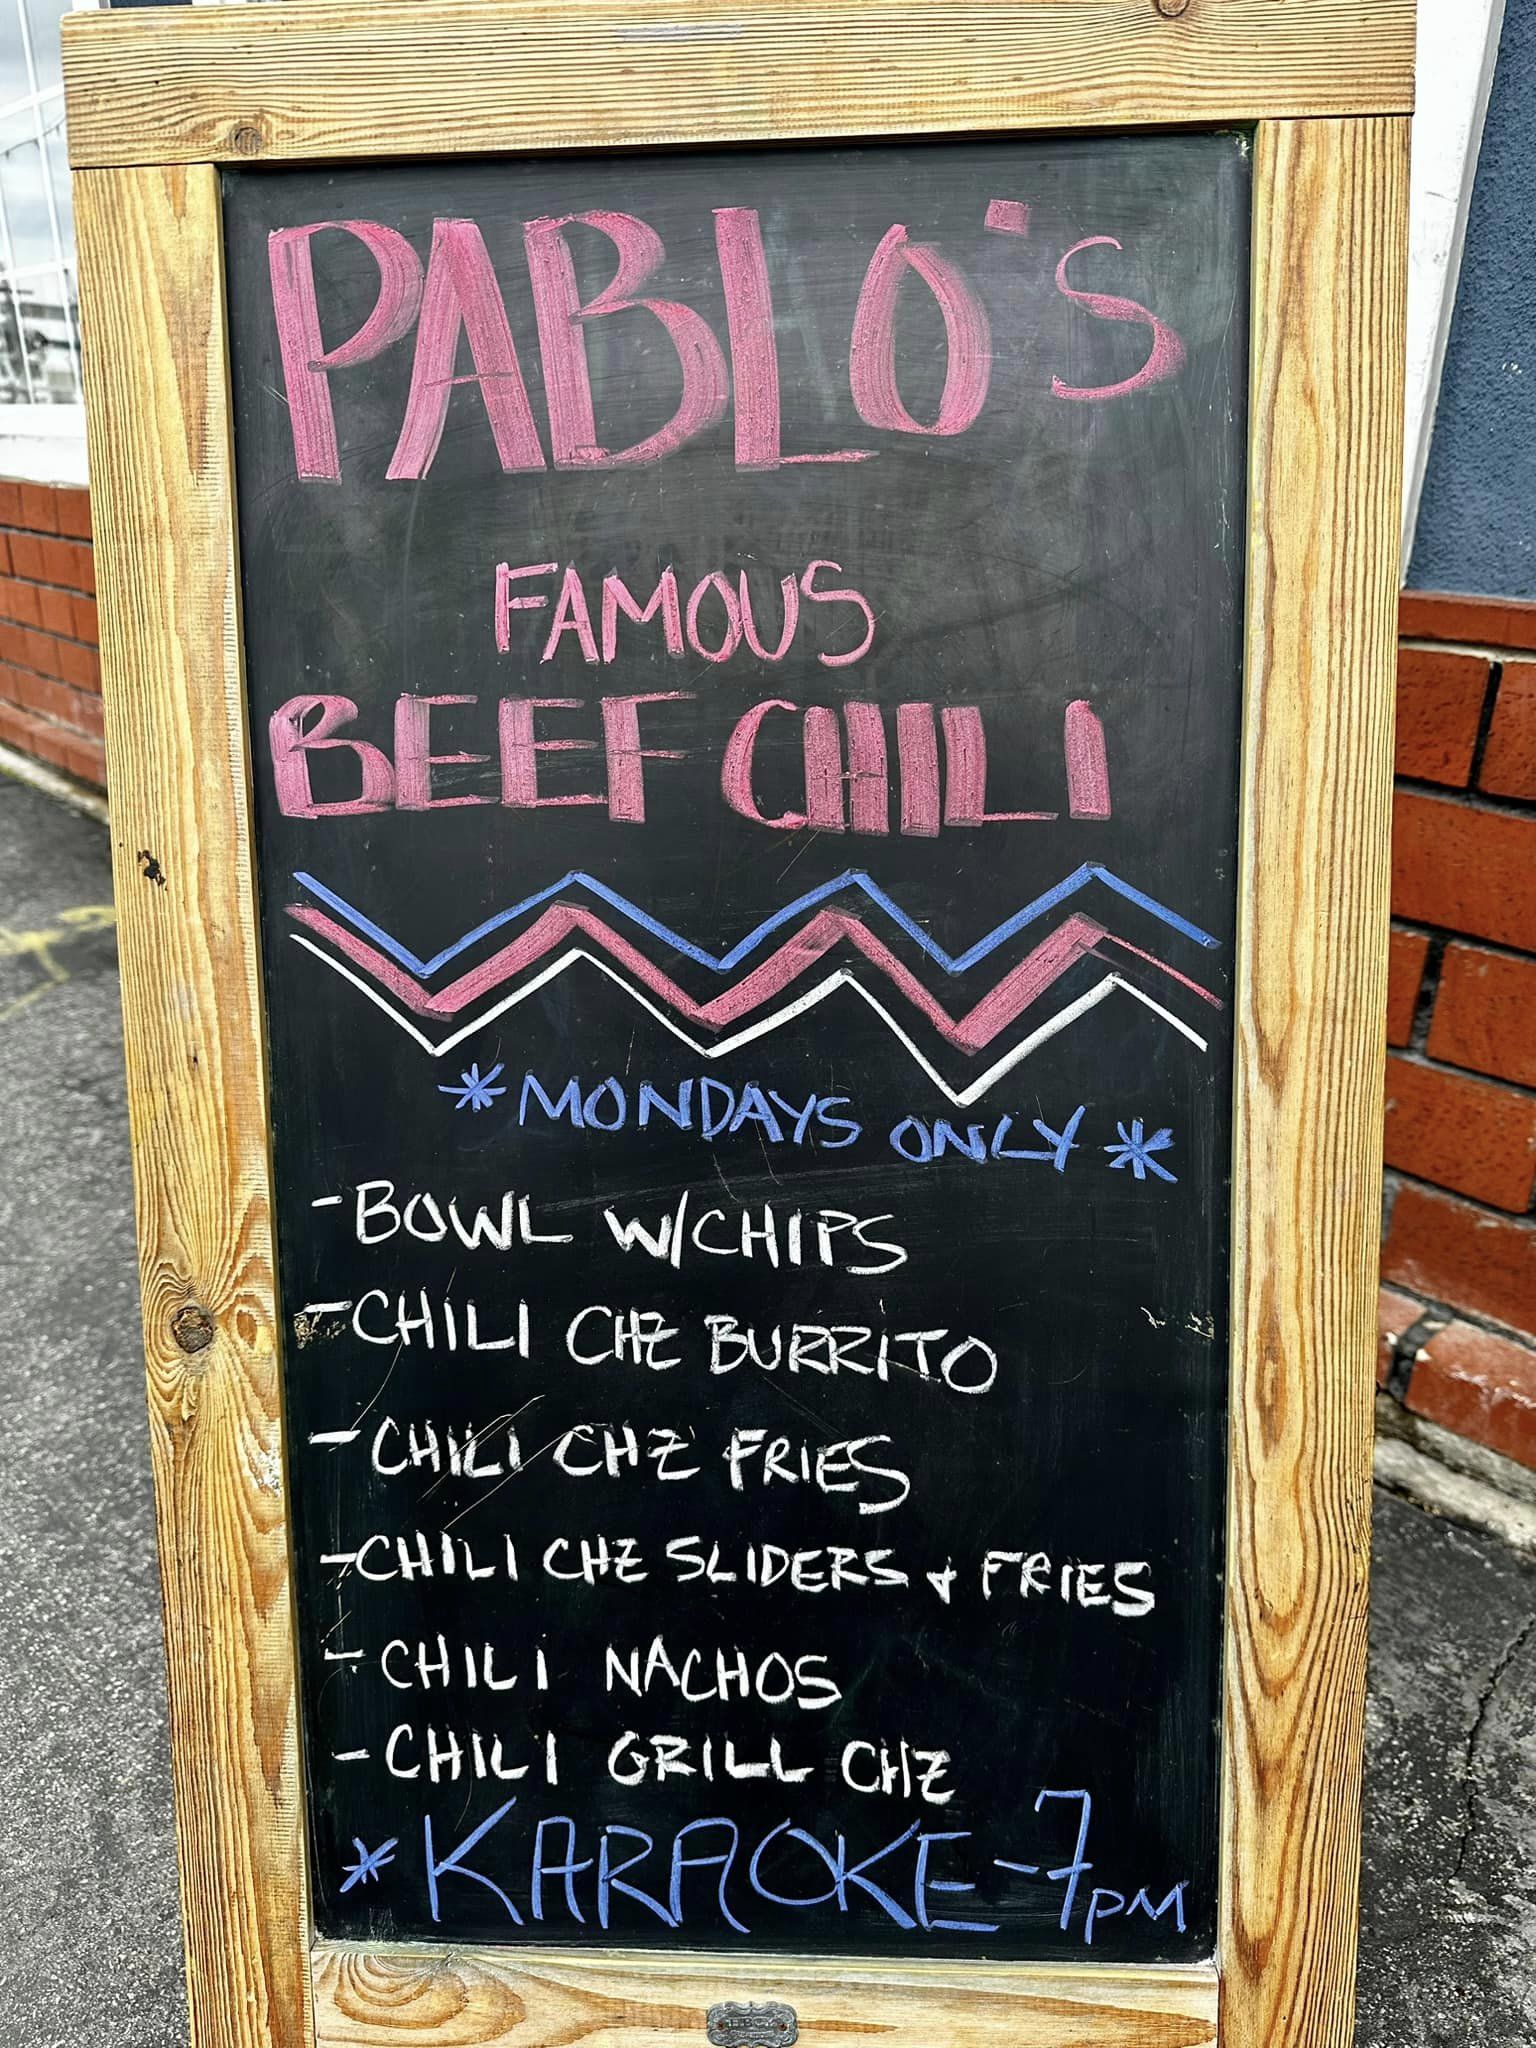 PABLO'S
FAMOUS
BEEF CHILI
*MONDAYS ONLY*
-BOWL W/CHIPS
-CHILI CHZ BURRITO
-CHILI CHZ FRIES
-CHILI CHZ SLIDERS + FRIES
-CHILI NACHOS
-CHILI GRILL CHZ
*KARAOKE-7PM